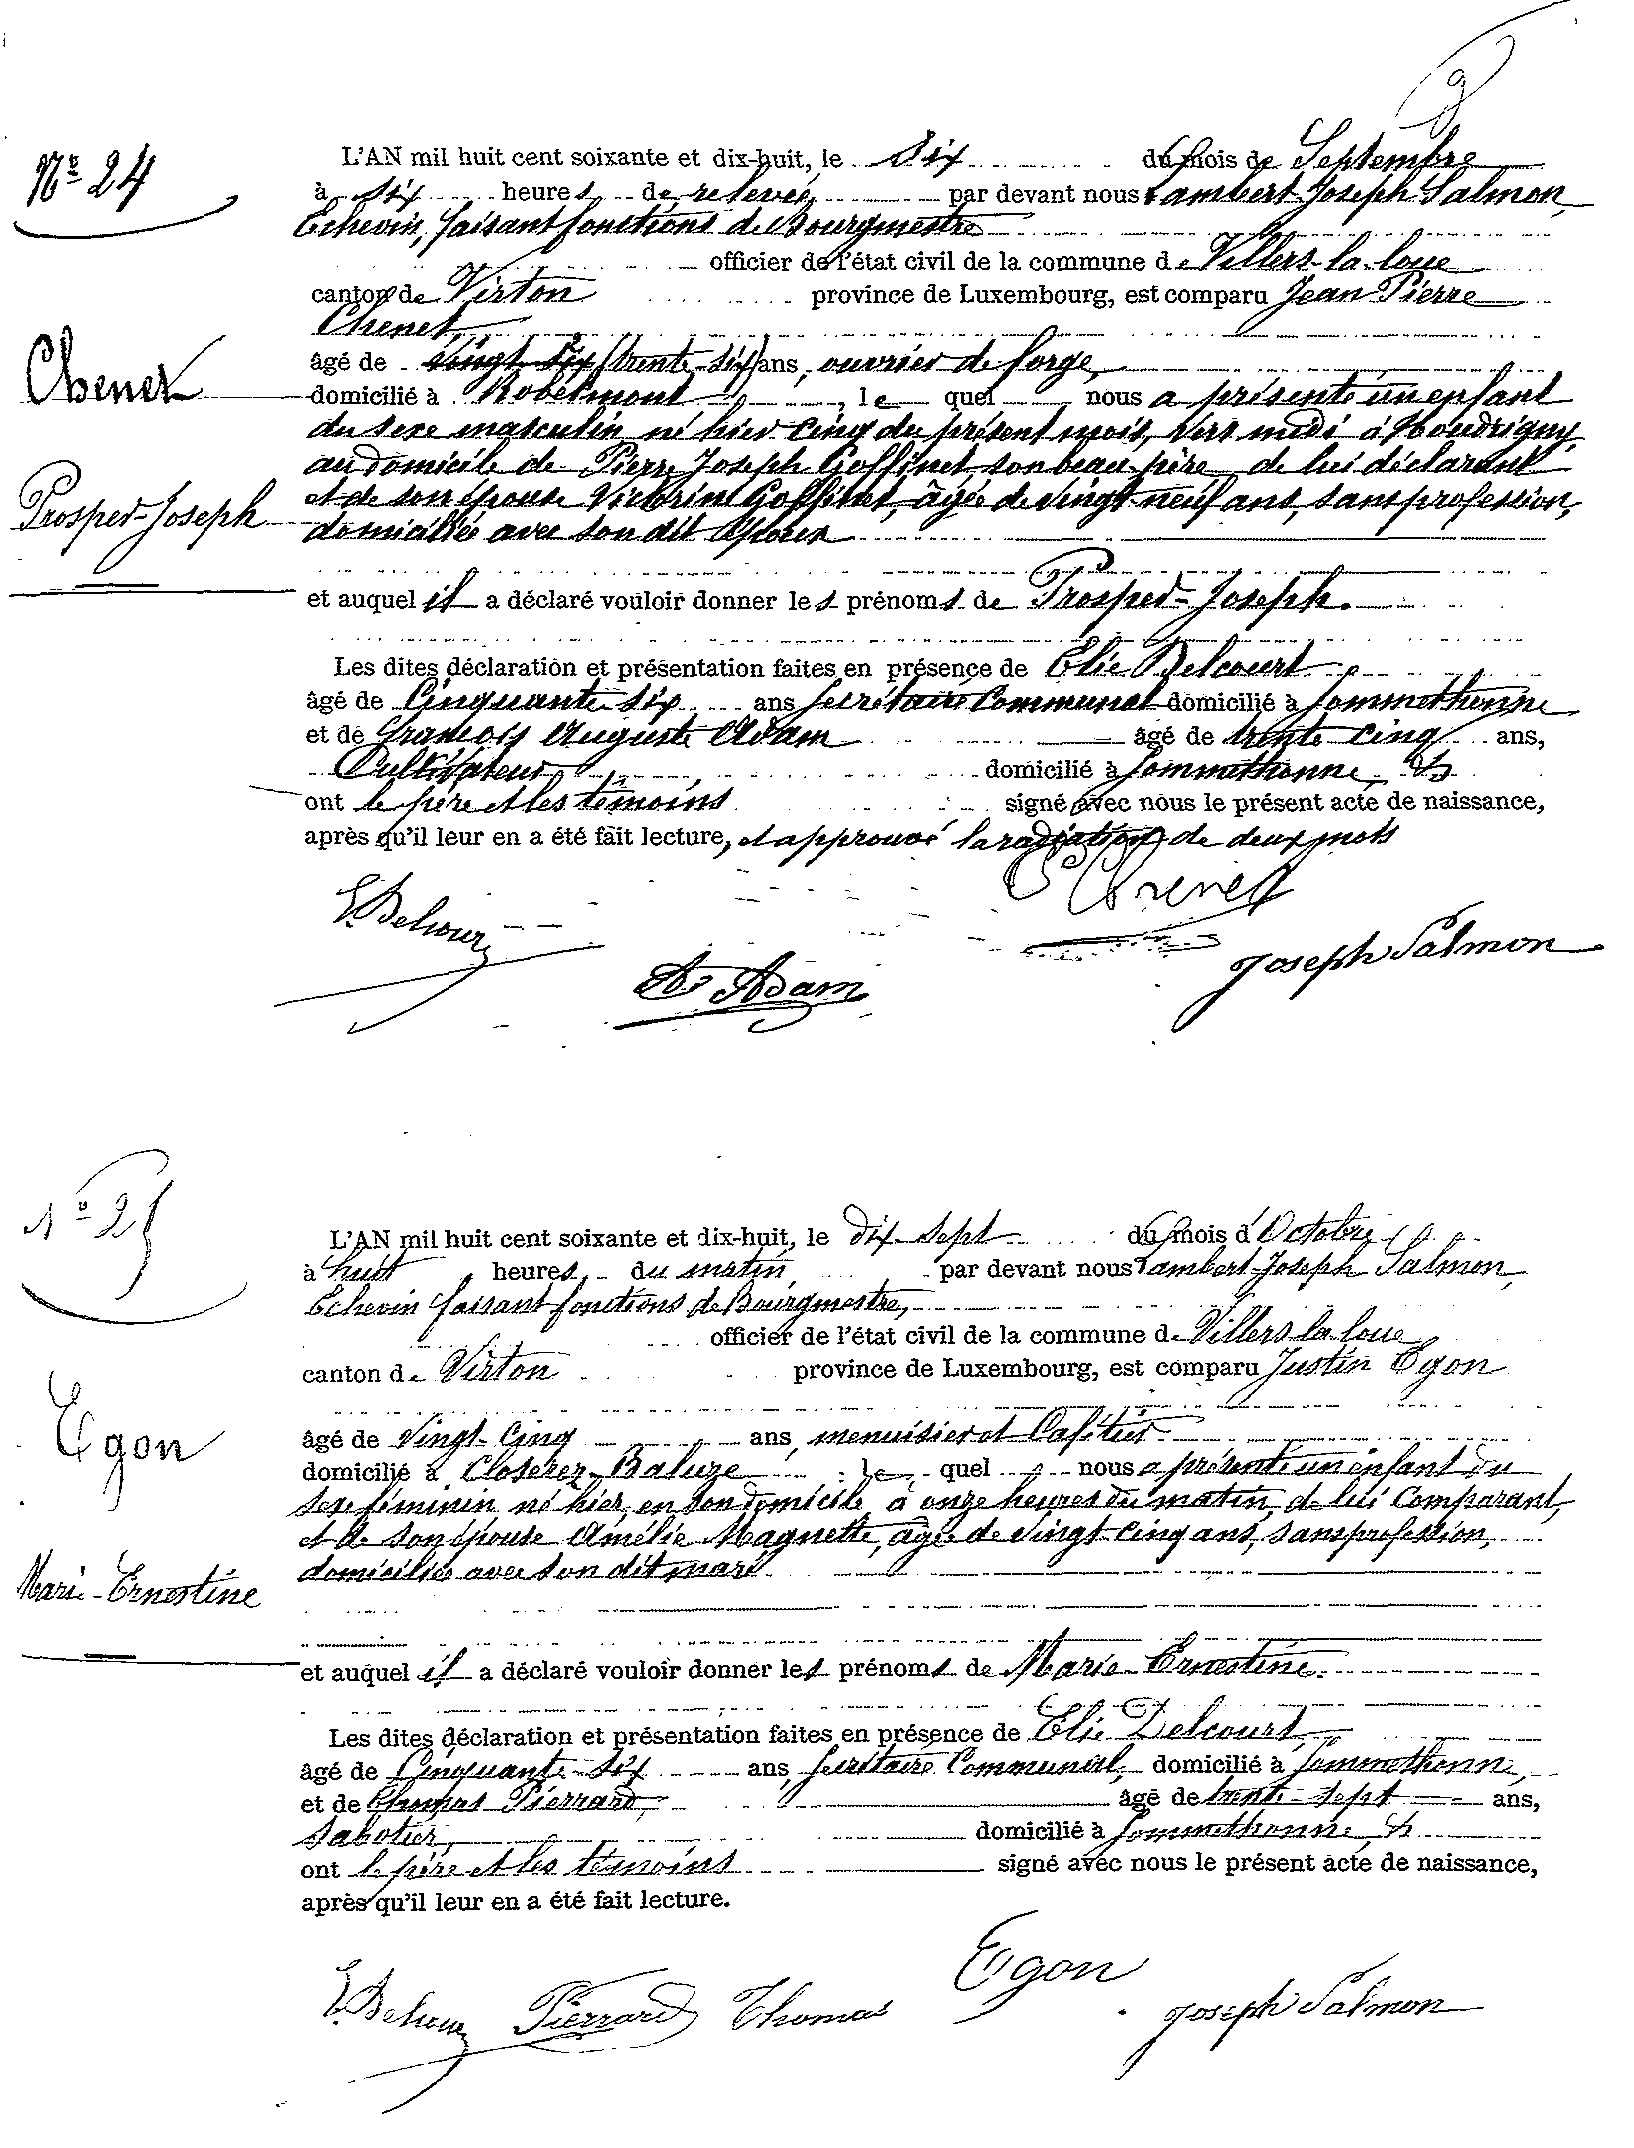 9
N° 24
L'AN mil huit cent soixante et dix-huit, le Six du mois de Septembre
à six heures de relevée, par devant nous Lambert Joseph Salmon,
Echevin, faisant fonctions de Bourgmestre
officier de l'état civil de la commune de Villers-la-loue
canton de Virton province de Luxembourg, est comparu Jean Pierre
Chenet,
âgé de vingt six (trente-six) ans, ouvrier de forge,
Chenet
domicilié à Robelmont, le quel nous a présenté un enfant
du sexe masculin né hier cinq du présent mois, vers midi à Houdrigny,
au domicile de Pierre Joseph Goffinet, son beau-père, de lui déclarant
Prosper-Joseph
et de son épouse Victorine Goffinet, âgée de vingt-neuf ans, sans profession,
domiciliée avec son dit Epoux
et auquel il a déclaré vouloir donner les prénoms de Prosper-Joseph.
Les dites déclaration et présentation faites en présence de Elie Delcourt
âgé de Cinquante six ans Secrétaire Communal domicilié à Sommethonne
et de François Auguste Adam âgé de trente cinq ans,
Cultivateur, domicilié à Sommethonne, &
ont le père et les témoins signé avec nous le présent acte de naissance,
après qu'il leur en a été fait lecture, et approuvé la radiation de deux mots
E. Delcour
A. Adam
Chenet
Joseph Salmon
N° 25
L'AN mil huit cent soixante et dix-huit, le dix-sept du mois d'Octobre
à huit heures, du matin, par devant nous Lambert-Joseph Salmon,
Echevin faisant fonctions de Bourgmestre,
officier de l'état civil de la commune de Villers la loue
canton de Virton province de Luxembourg, est comparu Justin Egon
Egon
âgé de Vingt-Cinq ans, menuisier et Cafétier
domicilié à Closerez-Baluze le quel nous a présenté un enfant du
sexe féminin, né hier, en son domicile, à onze heures du matin, de lui Comparant,
et de son épouse Amélie Magnette, âgée de vingt-cinq ans, sans profession,
Marie-Ernestine
domiciliée avec son dit mari
et auquel il a déclaré vouloir donner les prénoms de Marie-Ernestine.
Les dites déclaration et présentation faites en présence de Elie Delcourt,
âgé de Cinquante-six ans, Secrétaire Communal, domicilié à Sommethonne,
et de Thomas Pierrard, âgé de trente-sept ans,
Sabotier, domicilié à Sommethonne, &
ont le père et les témoins signé avec nous le présent acte de naissance,
après qu'il leur en a été fait lecture.
E. Delcour Pierrard Thomas
Egon
Joseph Salmon